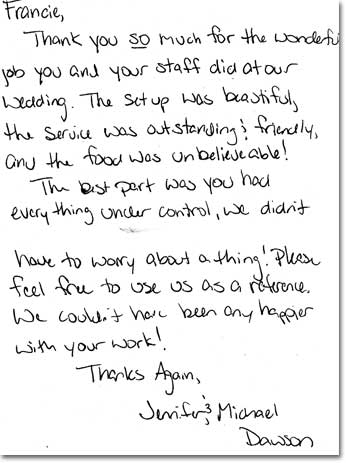 Francie,
Thank you so much for the wonderful
job you and your staff did at our
wedding. The set up was beautiful,
the service was outstanding & friendly,
and the food was unbelieveable!
The best part was you had
everything under control, we didn't
have to worry about a thing! Please
feel free to use us as a reference.
We couldn't have been any happier
with your work!
Thanks Again,
Jennifer & Michael
Dawson